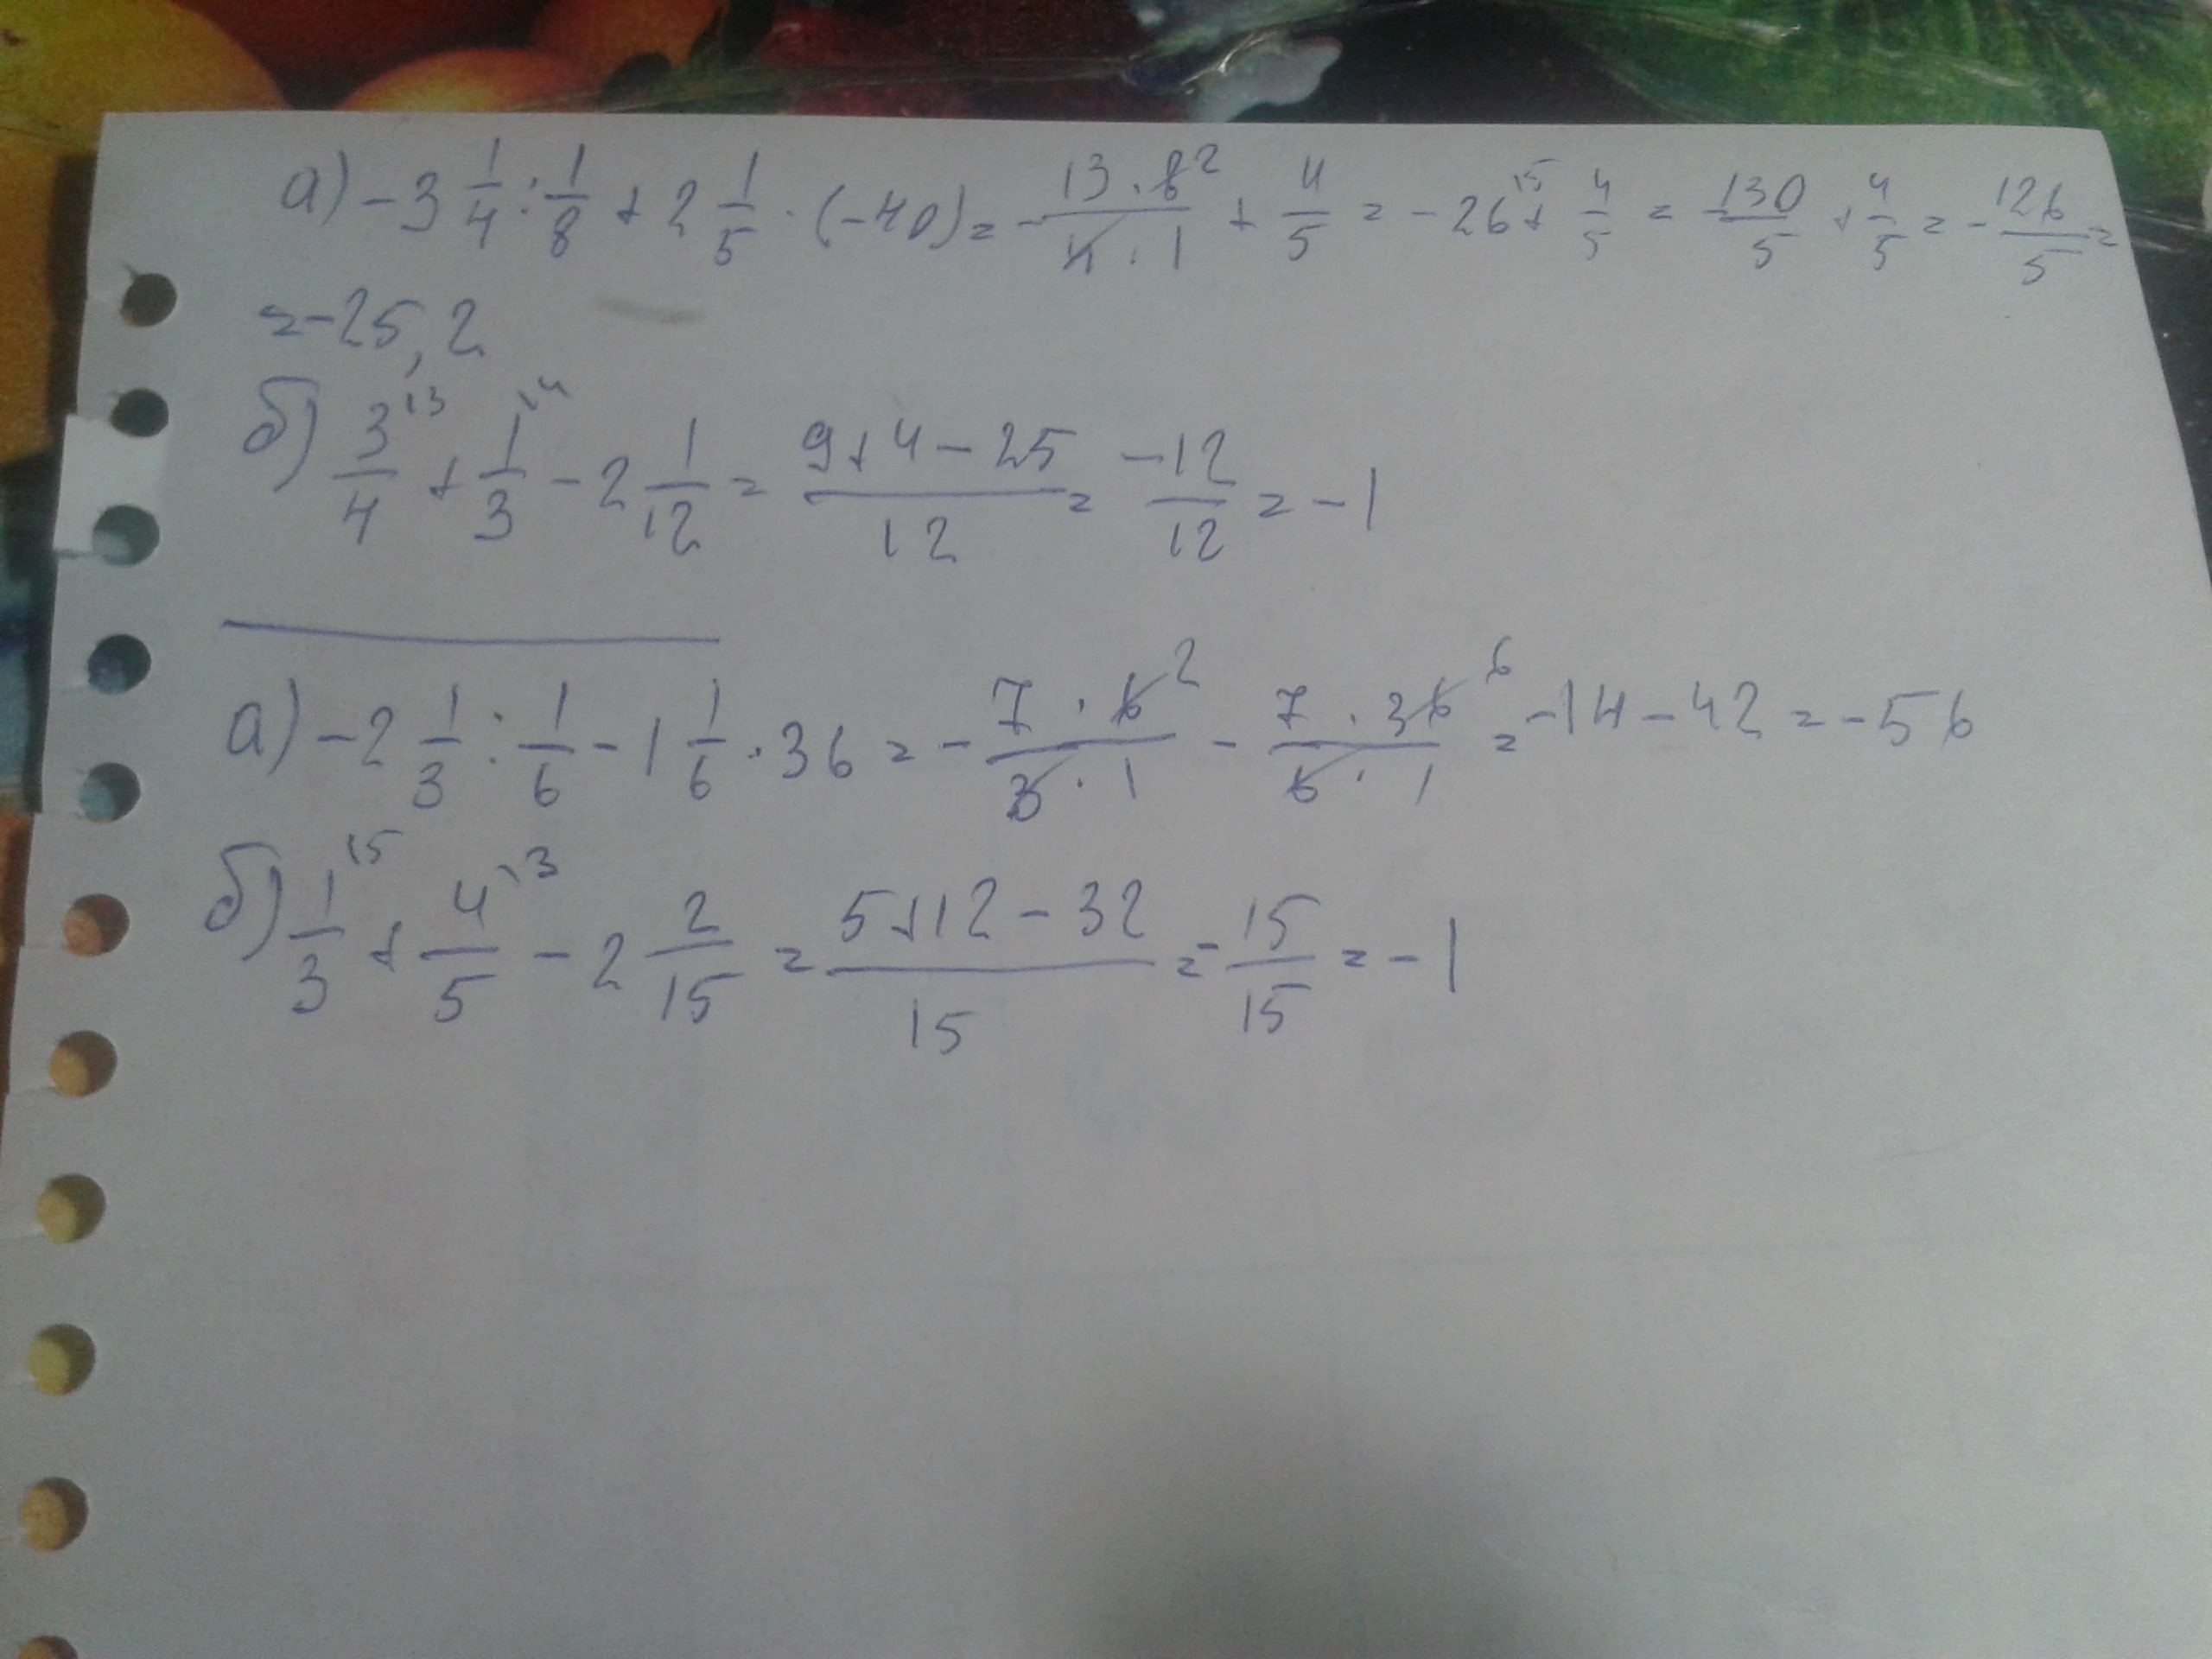 а) -3 1/4 : 1/8 + 2 1/5 · (-40) = - 13·8²/4·1 + 4/5 = -26\5 + 4/5 = -130/5 + 4/5 = - 126/5 =
= -25,2
б) 3\3/4 + 1\4/3 - 2 1/12 = 9+4-25/12 = -12/12 = -1
а) -2 1/3 : 1/6 - 1 1/6 · 36 = - 7·6²/3·1 - 7·36⁶/6·1 = -14 - 42 = -56
б) 1\5/3 + 4\3/5 - 2 2/15 = 5+12-32/15 = - 15/15 = -1